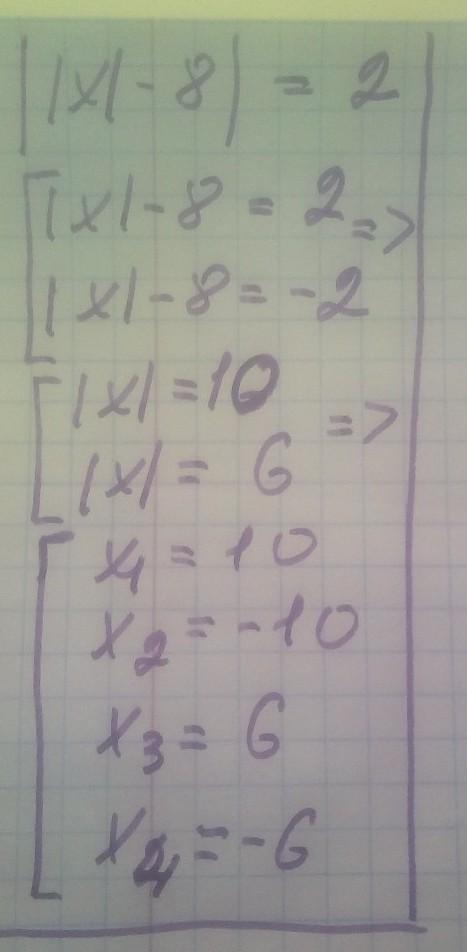 ||x| - 8| = 2
|x| - 8 = 2 =>
|x| - 8 = -2
|x| = 10 =>
|x| = 6
x₁ = 10
x₂ = -10
x₃ = 6
x₄ = -6